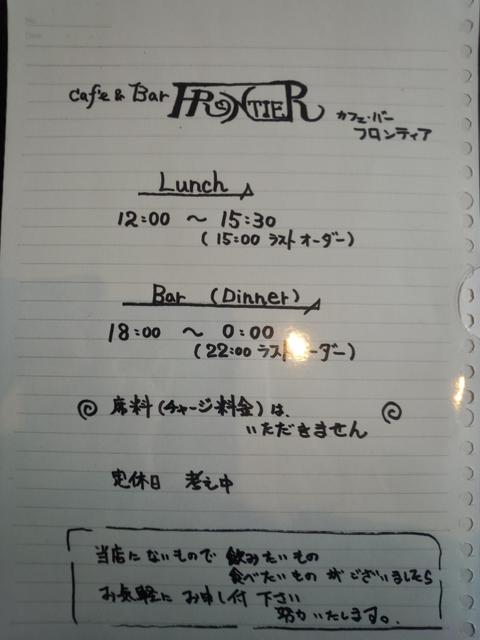 Cafe & Bar FRONTIER
カフェ・バー
フロンティア
Lunch
12:00 〜 15:30
(15:00 ラストオーダー)
Bar (Dinner)
18:00 〜 0:00
(22:00 ラストーダー)
席料(チャージ料金)は、
いただきません
定休日 考え中
当店にないもので 飲みたいもの
食べたいもの がございましたら
お気軽に お申し付 下さい
努力いたします。